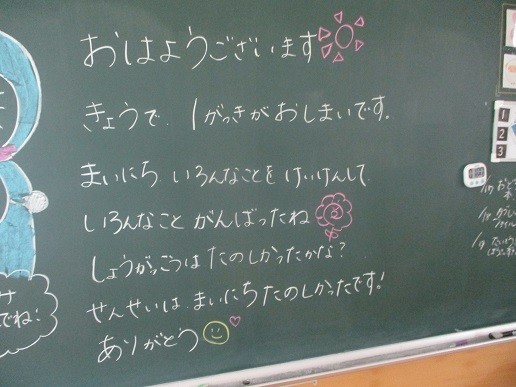 おはようございます
きょうで、1がっきがおしまいです。
まいにち、いろんなことをけいけんして、
いろんなことがんばったね
しょうがっこうはたのしかったかな?
せんせいは、まいにちたのしかったです!
ありがとう
でね!
1
2
3